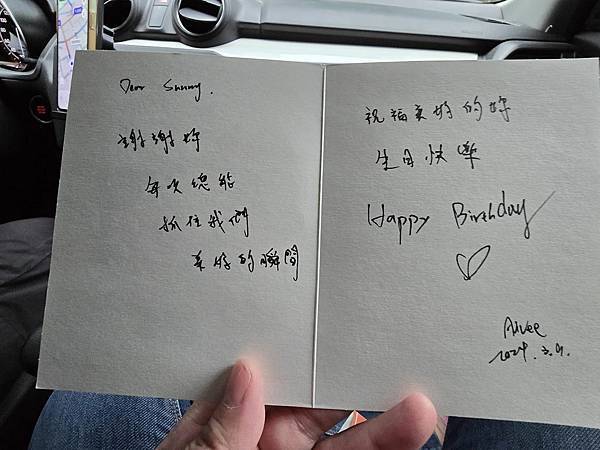 Dear Sunny.
謝謝妳
每次總能
抓住我們
美好的瞬間
祝福美好的妳
生日快樂
Happy Birthday
2024.3.9.